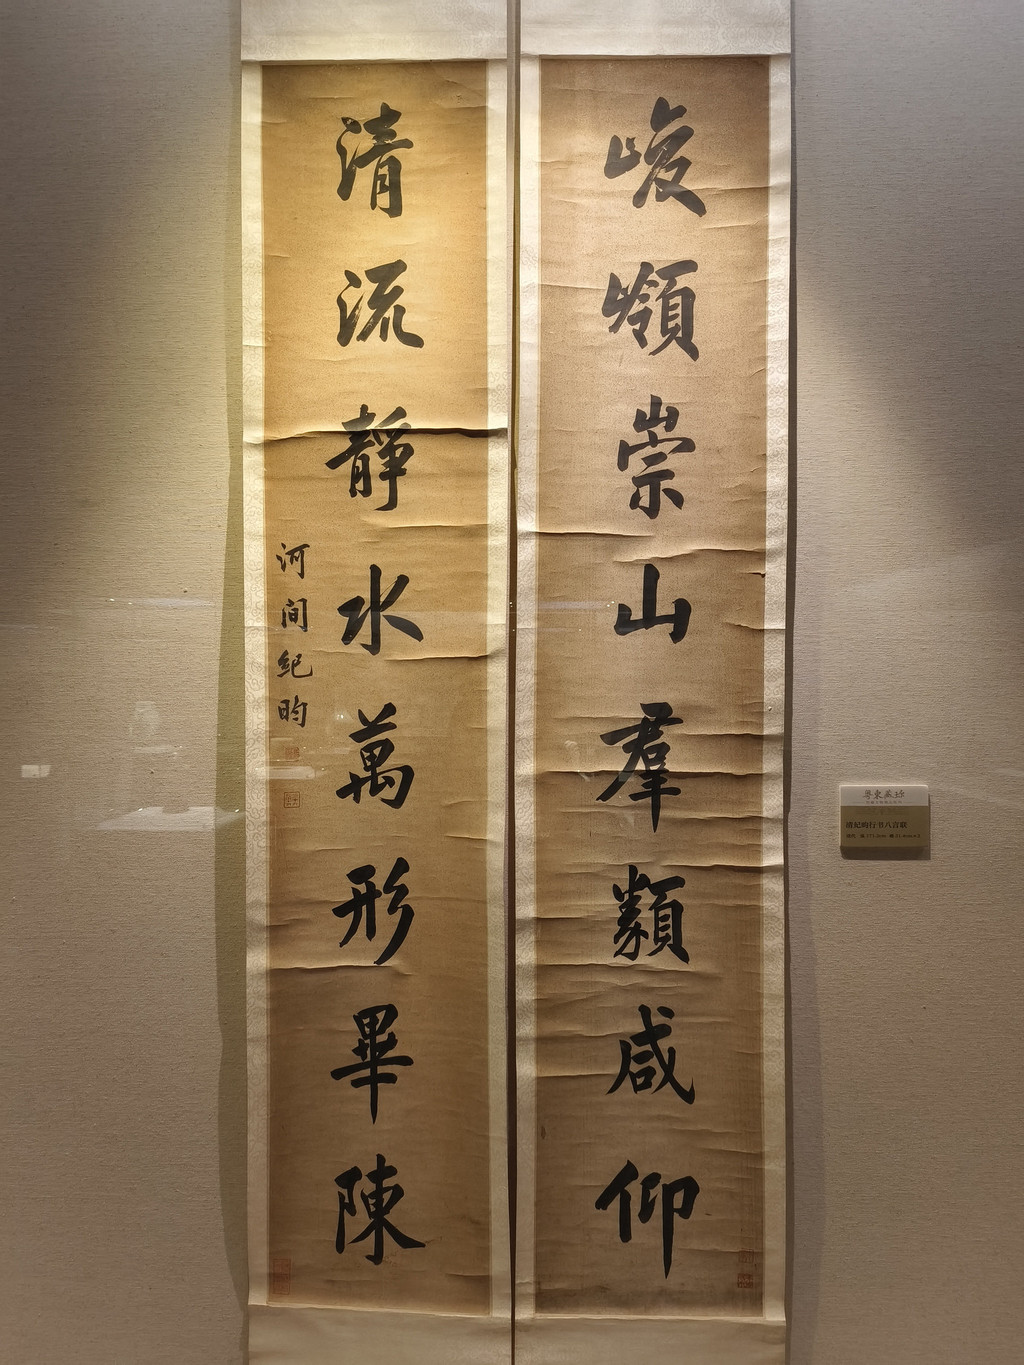 峻嶺崇山羣類咸仰
清流靜水萬形畢陳
河间紀昀
粤東藏珍
清纪昀行书八言联